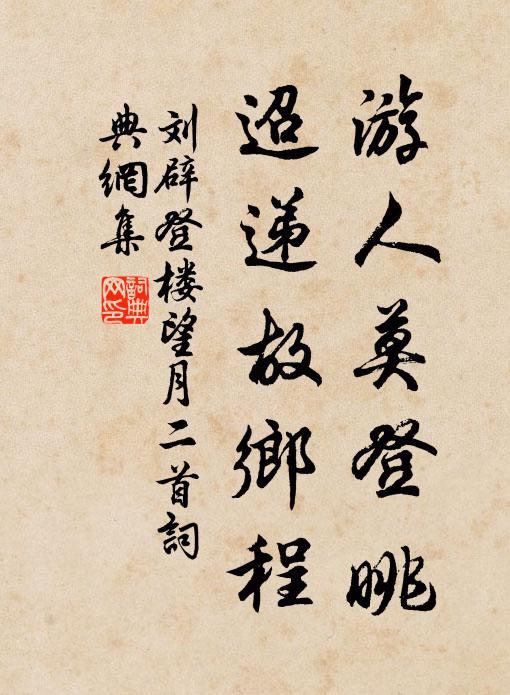 游人莫登眺
迢递故鄉程
刘辟登楼望月二首詞
典網集
詞典
网印